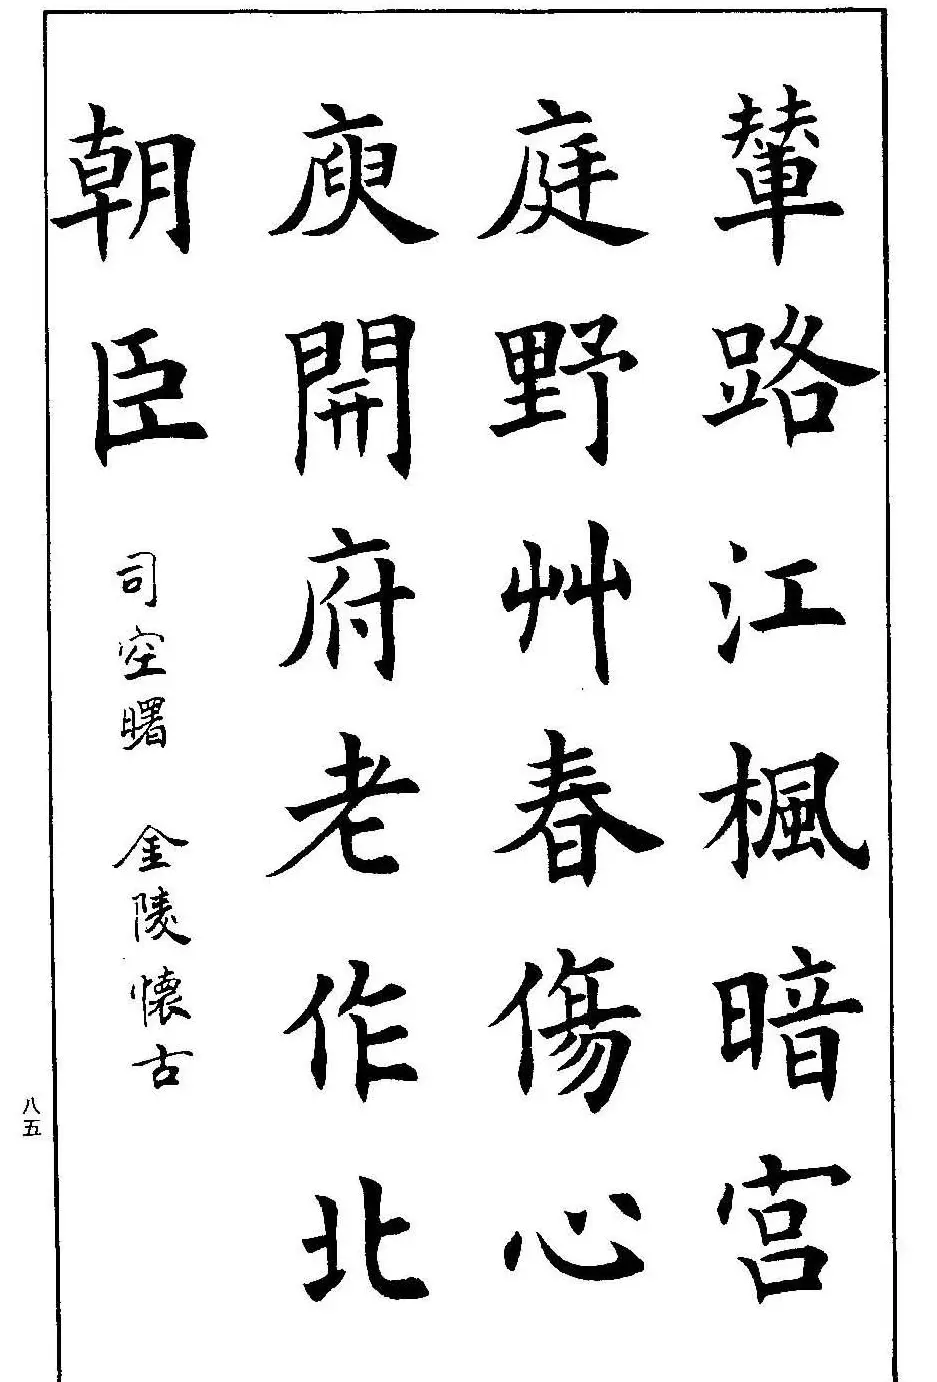 輦路江楓暗宮
庭野艸春傷心
庾開府老作北
朝臣
司空曙 金陵懷古
八五